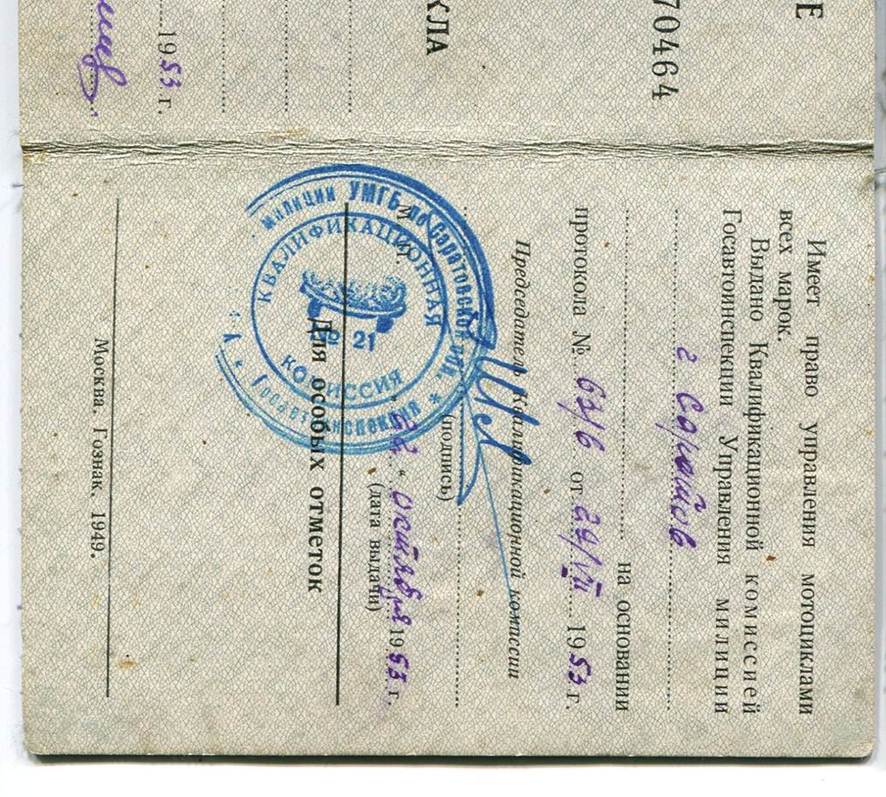 Е
70464
КЛА
1953 г.
Имеет право управления мотоциклами
всех марок.
Выдано Квалификационной комиссией
Госавтоинспекции Управления милиции
г Саратов
на основании
протокола № 63/6 от 29/VII 1953 г.
Председатель Квалификационной комиссии
(подпись)
М. П.
октября 1953 г.
(дата выдачи)
милиции УМГБ по Саратовской обл.
Госавтоинспекция
КВАЛИФИКАЦИОННАЯ
КОМИССИЯ
№ 21
Для особых отметок
Москва. Гознак. 1949.